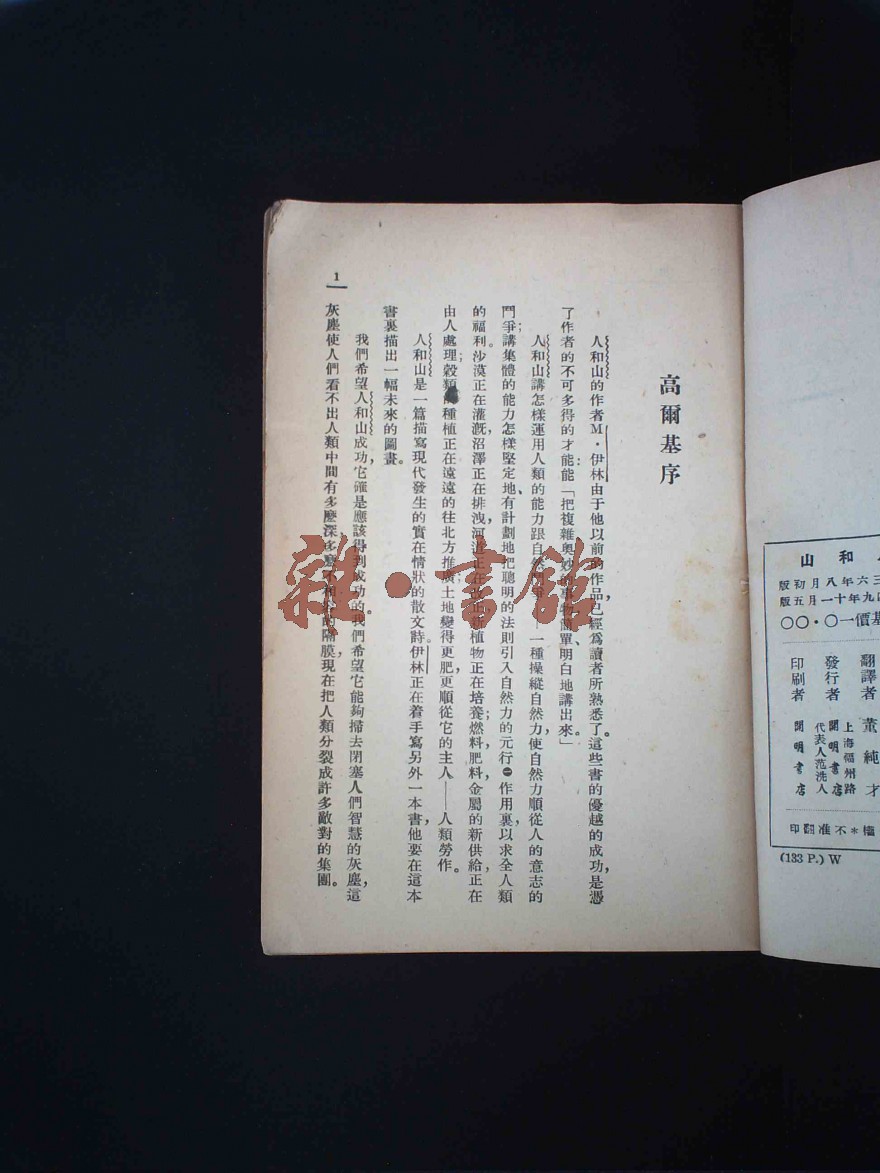 高爾基序
人和山的作者M·伊林由于他以前的作品,已經爲讀者所熟悉了。這些書的優越的成功,是憑
了作者的不可多得的才能:能「把複雜奧妙的事物簡單、明白地講出來。」
人和山講怎樣運用人類的能力跟自然 一種操縱自然力,使自然力順從人的意志的
鬥爭;講集體的能力怎樣堅定地、有計劃地把聰明的法則引入自然力的元行㊀作用裏,以求全人類
的福利。沙漠正在灌漑,沼澤正在排洩,河道正在改正,新植物正在培養;燃料,肥料,金屬的新供給,正在
由人處理;穀類 種植正在遠遠的往北方推廣;土地變得更肥,更順從它的主人——人類勞作。
人和山是一篇描寫現代發生的實在情狀的散文詩。伊林正在着手寫另外一本書,他要在這本
書裏描出一幅未來的圖畫。
我們希望人和山成功,它確是應該得到成功的。我們希望它能夠掃去閉塞人們智慧的灰塵,這
灰塵使人們看不出人類中間有多麽深多麽不相 的隔膜,現在把人類分裂成許多敵對的集團。
1
山和
三六年八月初版
九年十一月五版
基價一〇·〇〇
翻譯者 董純才
發行者 上海福州路 開明書店 代表人范洗人
印刷者 開明書店
權*不准翻印
(133 P.) W
雜·書館